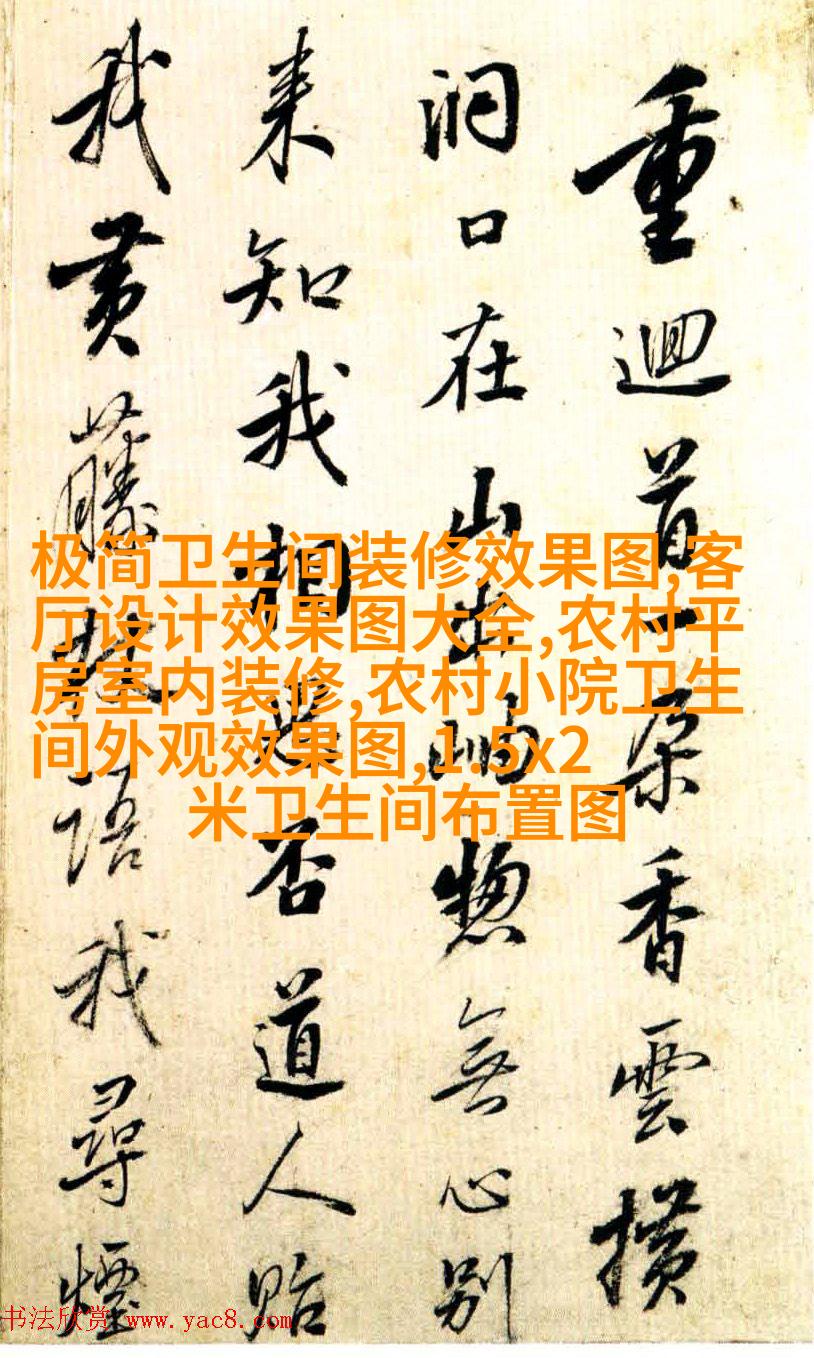 重迴首一朵香雲撗
洞口在山出岫惣無心别
来知我相逢否道人貽
我黄藤杖語我尋煙
极简卫生间装修效果图,客
厅设计效果图大全,农村平
房室内装修,农村小院卫生
间外观效果图,1.5x2
米卫生间布置图
书法欣赏 www.yac8.com